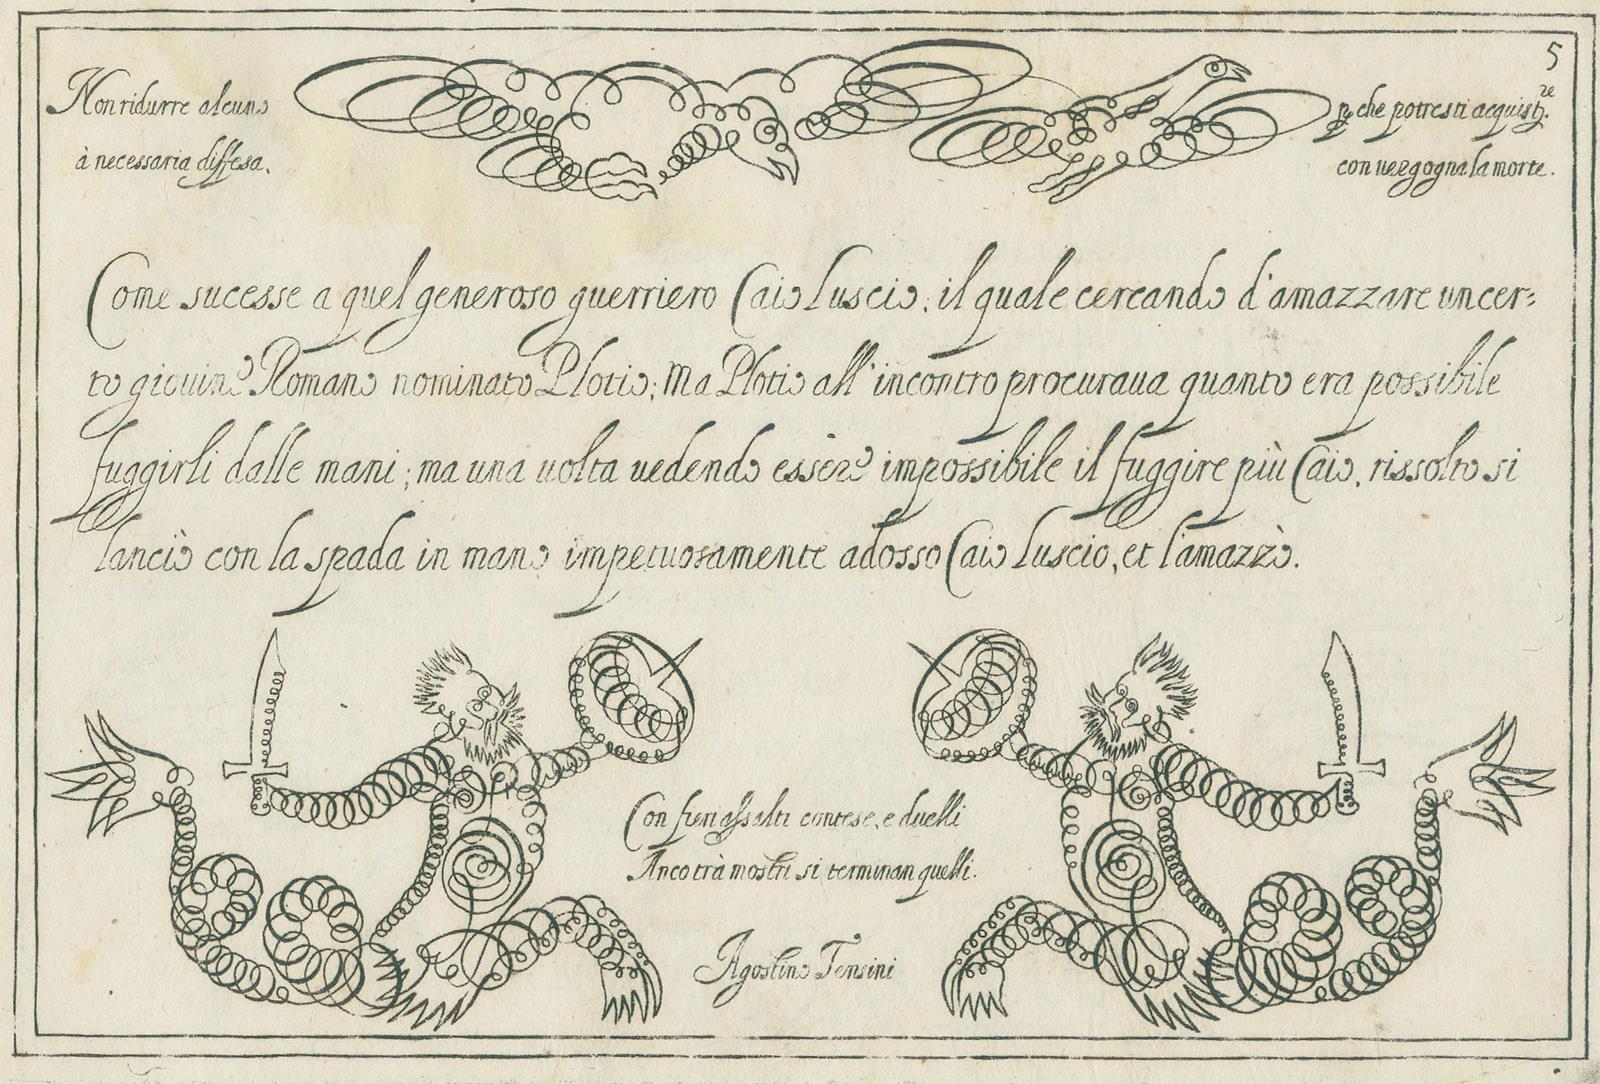 5
Non ridurre alcuno
à necessaria diffesa.
ꝑ che potresti acquistre.
con uergogna la morte.
Come sucesse a quel generoso guerriero Caio Luscio; il quale cercando d'amazzare un cer-
to giouine Romano nominato Plotio; Ma Plotio all'incontro procuraua quanto era possibile
fuggirli dalle mani; ma una uolta uedendo essere impossibile il fuggire più Caio, rissolto si
lanciò con la spada in mano impetuosamente adosso Caio Luscio, et l'amazzò.
Con fieri assalti contese, e duelli
Anco trà mostri si terminan quelli.
Agostino Tensini